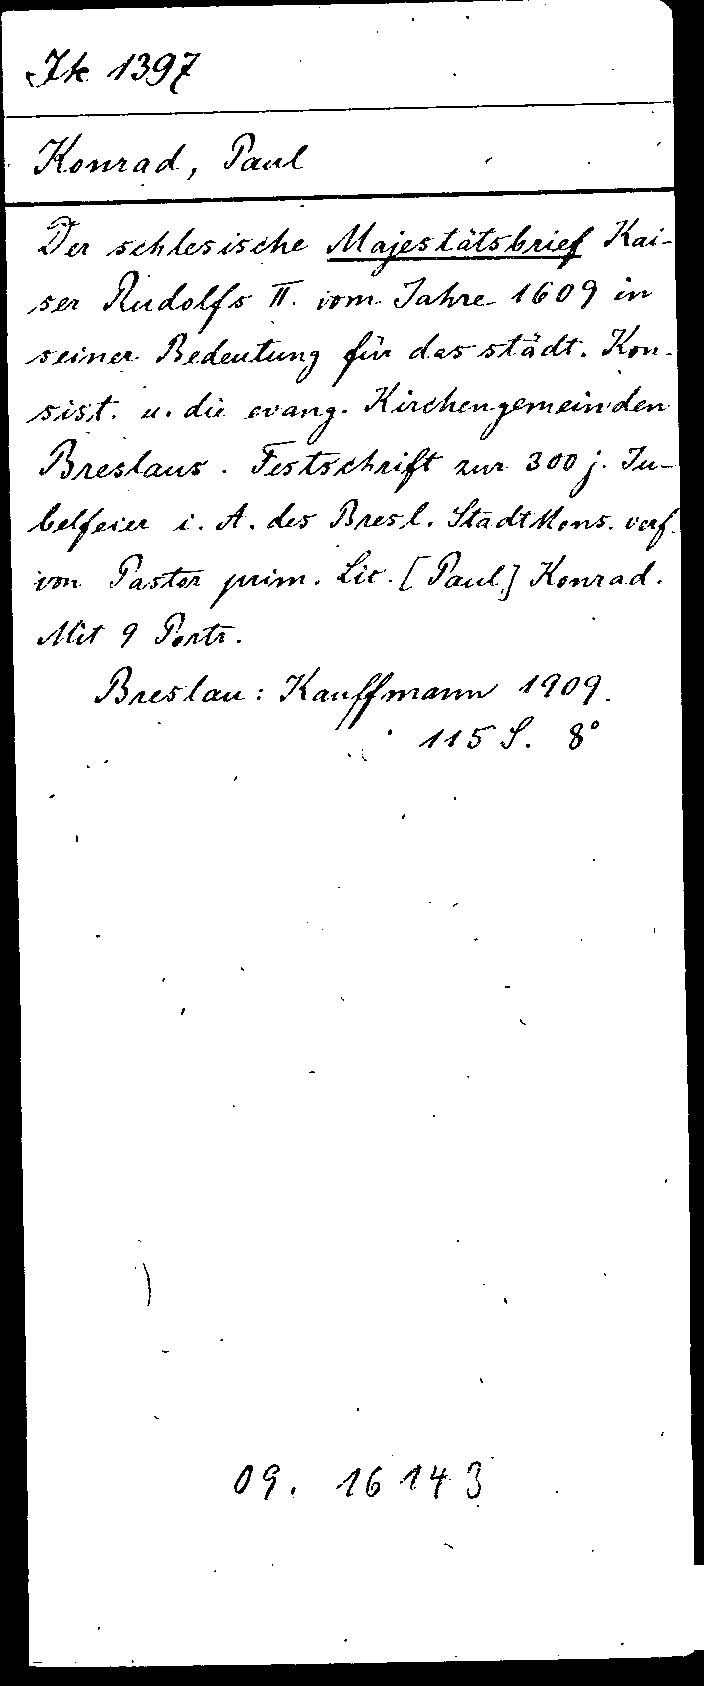 Jk 1397
Konrad, Paul
Der schlesische Majestätsbrief Kai-
ser Rudolfs II. vom Jahre 1609 in
seiner Bedeutung für das städt. Kon-
sist. u. die evang. Kirchengemeinden
Breslaus. Festschrift zur 300 j. Ju-
belfeier i. A. des Bresl. Stadtkons. verf.
von Pastor prim. Lic. [Paul] Konrad.
Mit 9 Portr.
Breslau: Kauffmann 1909.
115 S. 8°
09. 16143